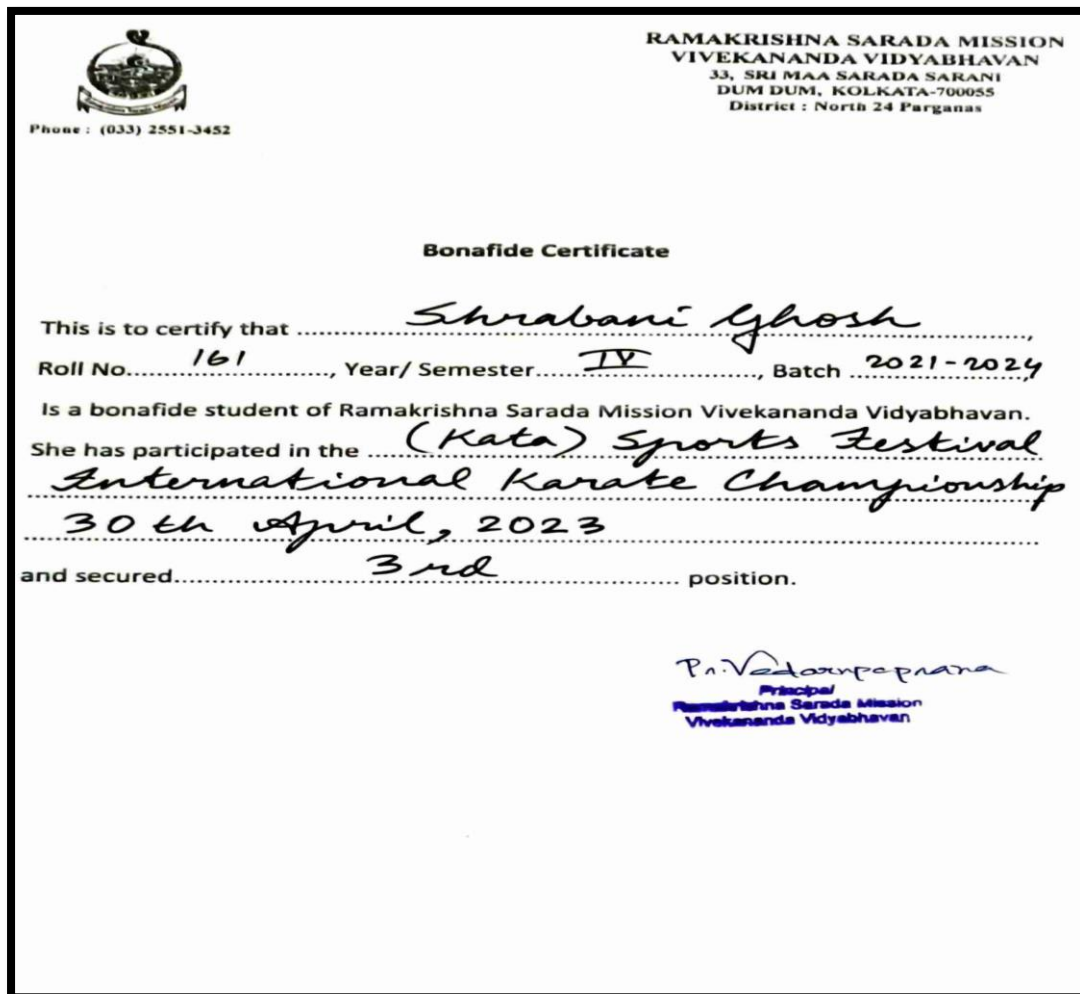 RAMAKRISHNA SARADA MISSION
VIVEKANANDA VIDYABHAVAN
33, SRI MAA SARADA SARANI
DUM DUM, KOLKATA-700055
District : North 24 Parganas
Ramakrishna Sarada Mission
Phone : (033) 2551-3452
Bonafide Certificate
This is to certify that Shrabani Ghosh,
Roll No. 161, Year/ Semester IV, Batch 2021-2024,
Is a bonafide student of Ramakrishna Sarada Mission Vivekananda Vidyabhavan.
She has participated in the (Kata) Sports Festival
International Karate Championship
30th April, 2023
and secured 3rd position.
Principal
Ramakrishna Sarada Mission
Vivekananda Vidyabhavan